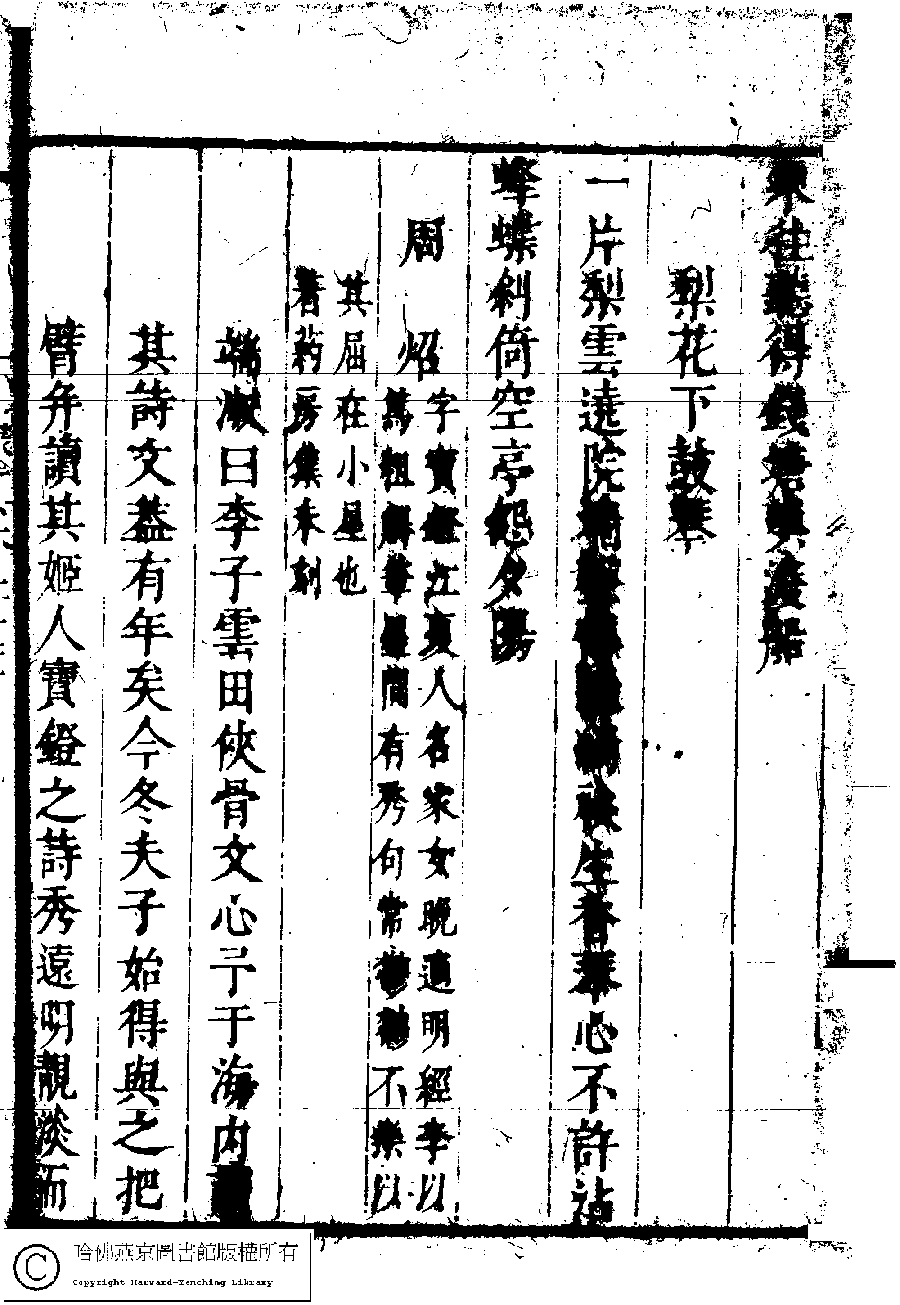 聽得錢塘喚渡船
梨花下鼓琴
一片梨雲遶院生香琴心不許沾
蜂蝶斜倚空亭怨夕陽
周炤
字寶鐙江夏人名家女晚適明經李以
篤粗解筆墨間有秀句常鬱鬱不樂以
其屈在小星也
著葯房集未刻
端淑曰李子雲田俠骨文心予于海内讀
其詩文葢有年矣今冬夫子始得與之把
臂弁讀其姬人寶鐙之詩秀遠明靚淡而
哈佛燕京圖書館版權所有
Copyright Harvard-Yenching Library